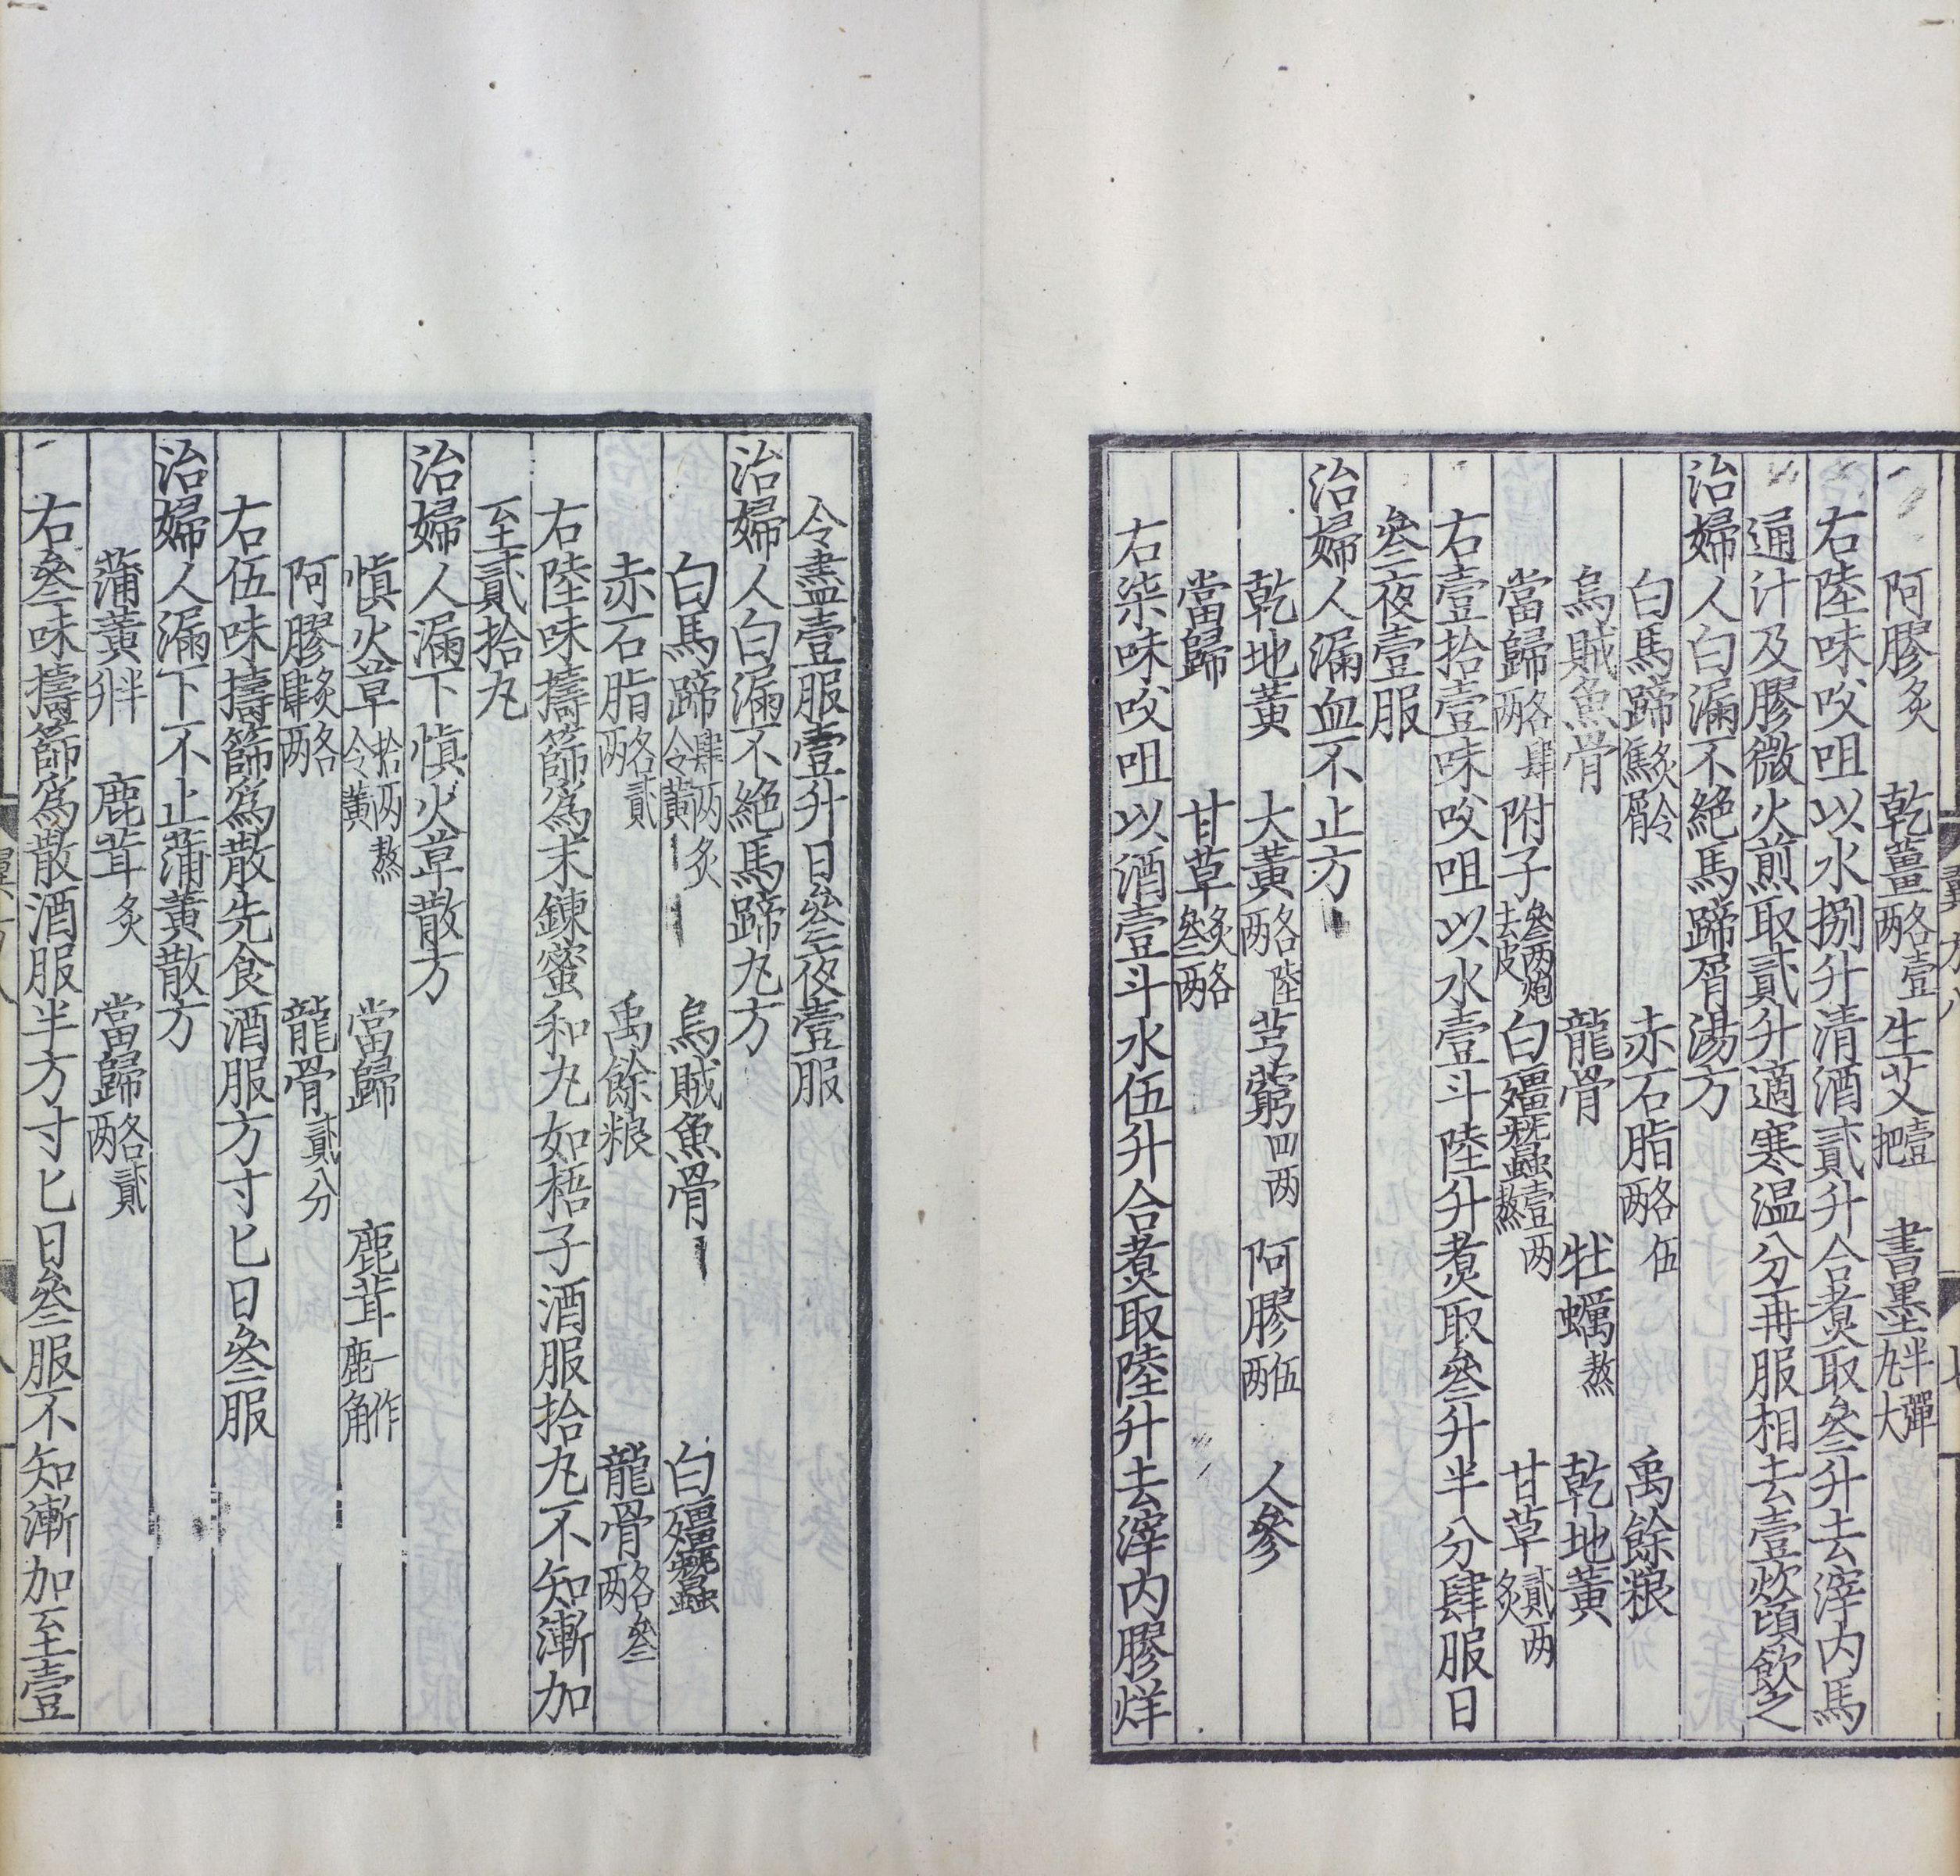 阿膠炙　乾薑各壹两　生艾壹把　書墨半丸彈大
右陸味㕮咀以水捌升清酒貳升合煮取叄升去滓内馬
通汁及膠微火煎取貳升適寒温分再服相去壹炊頃飲之
治婦人白漏不絶馬蹄屑湯方
白馬蹄炙令焦屑　赤石脂各伍两　禹餘粮
烏賊魚骨　龍骨　牡蠣熬　乾地黃
當歸各肆两　附子叄两炮去皮　白殭蠶壹两熬　甘草貳两炙
右壹拾壹味㕮咀以水壹斗陸升煮取叄升半分肆服日
叄夜壹服
治婦人漏血不止方
乾地黃　大黃各陸两　芎藭四两　阿膠伍两　人參
當歸　甘草炙各叄两
右柒味㕮咀以酒壹斗水伍升合煮取陸升去滓内膠烊
令盡壹服壹升日叄夜壹服
治婦人白漏不絶馬蹄丸方
白馬蹄肆两炙令黃　烏賊魚骨　白殭蠶
赤石脂各貳两　禹餘粮　龍骨各叄两
右陸味擣篩為末錬蜜和丸如梧子酒服拾丸不知漸加
至貳拾丸
治婦人漏下慎火草散方
慎火草拾两熬令黃　當歸　鹿茸一作鹿角
阿膠炙各肆两　龍骨貳分
右伍味擣篩為散先食酒服方寸匕日叄服
治婦人漏下不止蒲黃散方
蒲黃半升　鹿茸炙　當歸各貳两
右叄味擣篩為散酒服半方寸匕日叄服不知漸加至壹